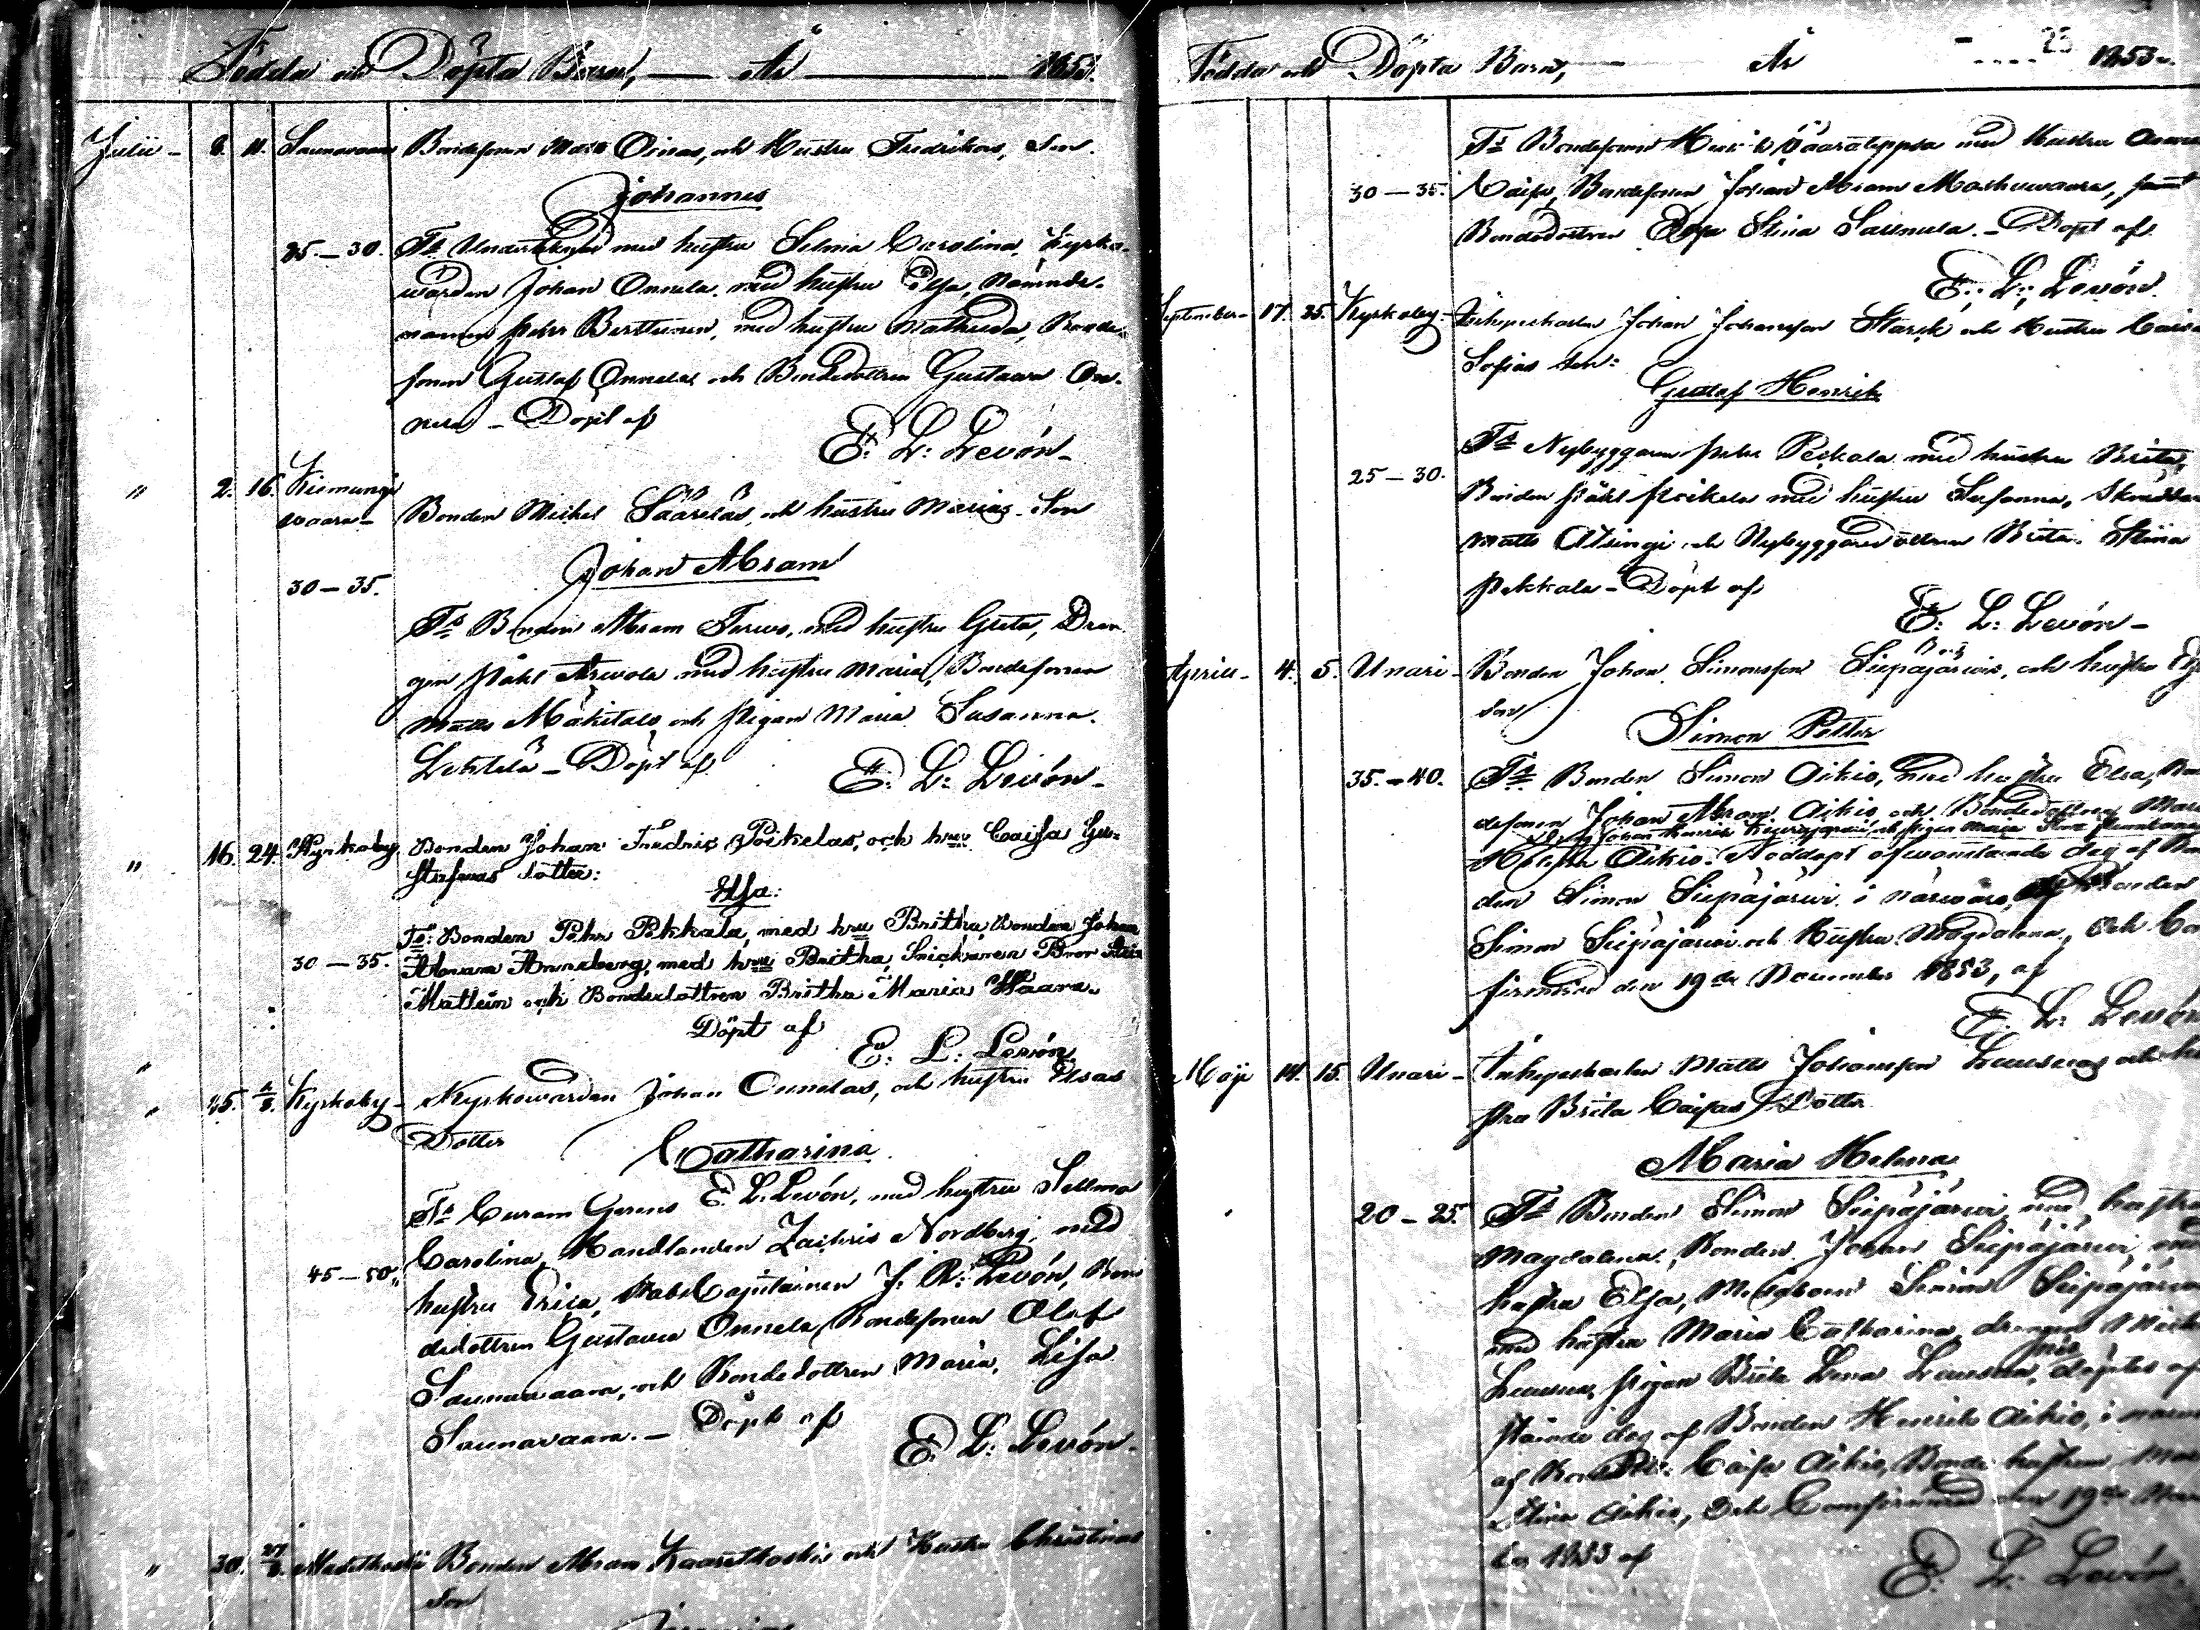 Födda och Döpta Barn, År 1853.
Julii 8. 11. Saunavaara Bondesonen Mats Oinas, och Hustru Fredrikas, Son
Johannes
25.–30. Ts Undertecknad med hustru Selma Carolina, Kyrko-
wärden Johan Onnela, med hustru Elsa, Nämnde-
mannen Pehr med hustru Mathilda, Bonde-
sonen Gustaf Onnela och Bondedottren Gustava On-
nela – Döpt af
E. L: Levón
" 2. 16. Kiemungi
vaara Bonden Michel Sääreläs, och hustru Marias Son
Johan Abram
30–35.
Ts Bonden Abram Tervo, med hustru Greta, Dren
gen Påhl Arvola med hustru Maria, Bondesonen
Matts Mäkitalo och Pigan Maria Susanna
Lehtelä – Döpt af
E. L: Levón
" 16. 24. Kyrkoby Bonden Johan Fredric Poikelas, och hru Caisa Gu-
stafvas Dotter:
Elsa:
Ts: Bonden Pehr Pekkala, med hru Britha, Bonden Johan
30–35. Abram Anneberg, med hru Britha, Snickaren Bror
Mattein och Bondedottren Britha Maria Waara.
Döpt af
E. L: Levón
" 25. 2/8. Kyrkoby Kyrkowärden Johan Onnelas, och hustru Elsas
Dotter
Catharina
Ts Curam Gerens E. L. Levón, med hustru Sellma
Carolina, Handlanden Zachris Nordberg, med
45–50. hustru Erica, StabsCapitainen J. R: Levón, Bon
dedottren Gustava Onnela, Bondesonen Olof
Saunavaara, och Bondedottren Maria, Lisa
Saunavaara. – Döpt af
E. L: Levón
" 30. 27/8. Bonden Abram Kaaretkoskis och Hustru Christinas
Son
Födda och Döpta Barn, År 25 1853.
Ts Bondesonen Henrik Vaaratieppsa med Hustru Anna
30–35. Caisa, Bondesonen Johan Abram Moskuwaara, samt
Bondedottren Elsa Stina Sassnula. – Döpt af
E. L: Levón
September 17. 25. Kyrkoby Inhyseskarlen Johan Johansson Starck och Hustru Caisa
Sofias Son:
Gustaf Henrik
Ts Nybyggaren Pehr Peckala med hustru Brita,
25–30. Bonden Påhl Poikela med hustru Susanna,
Matts Alsingi och Nybyggaredottren Brita Stina
Pekkala – Döpt af
E. L: Levón
Aprill 4. 5. Unari Bonden Johan Simonsson Siepäjärvis, och hustru
Son
Simon Petter
35–40. Ts Bonden Simon Aikio, med hustru Elsa,
desonen Johan Abram Aikio och Bondedottren
Aikio. Nöddöpt ofvanstående dag af
den Simon Siepäjärvi i närvaro af Bonden
Simon Siepäjärvi och Hustru Magdalena, och Con
firmerad den 19de November 1853, af
E. L: Levón
Maji 14. 15. Unari Inhyseskarlen Matts Johansson och hu
stru Brita Caisas Dotter
Maria Helena
20–25. Ts Bonden Simon Siepäjärvi med hustru
Magdalena, Bonden Johan Siepäjärvi med
hustru Elsa, Simon Siepäjärvi
med hustru Maria Catharina, drengen
Pigan Brita Lena döptes af
stående dag af Bonden Henrik Aikio, i
af Caisa Aikio, Bonde hustrun
Stina Aikio, och Comfirmerad den 19de
1853 af
E. L: Levón